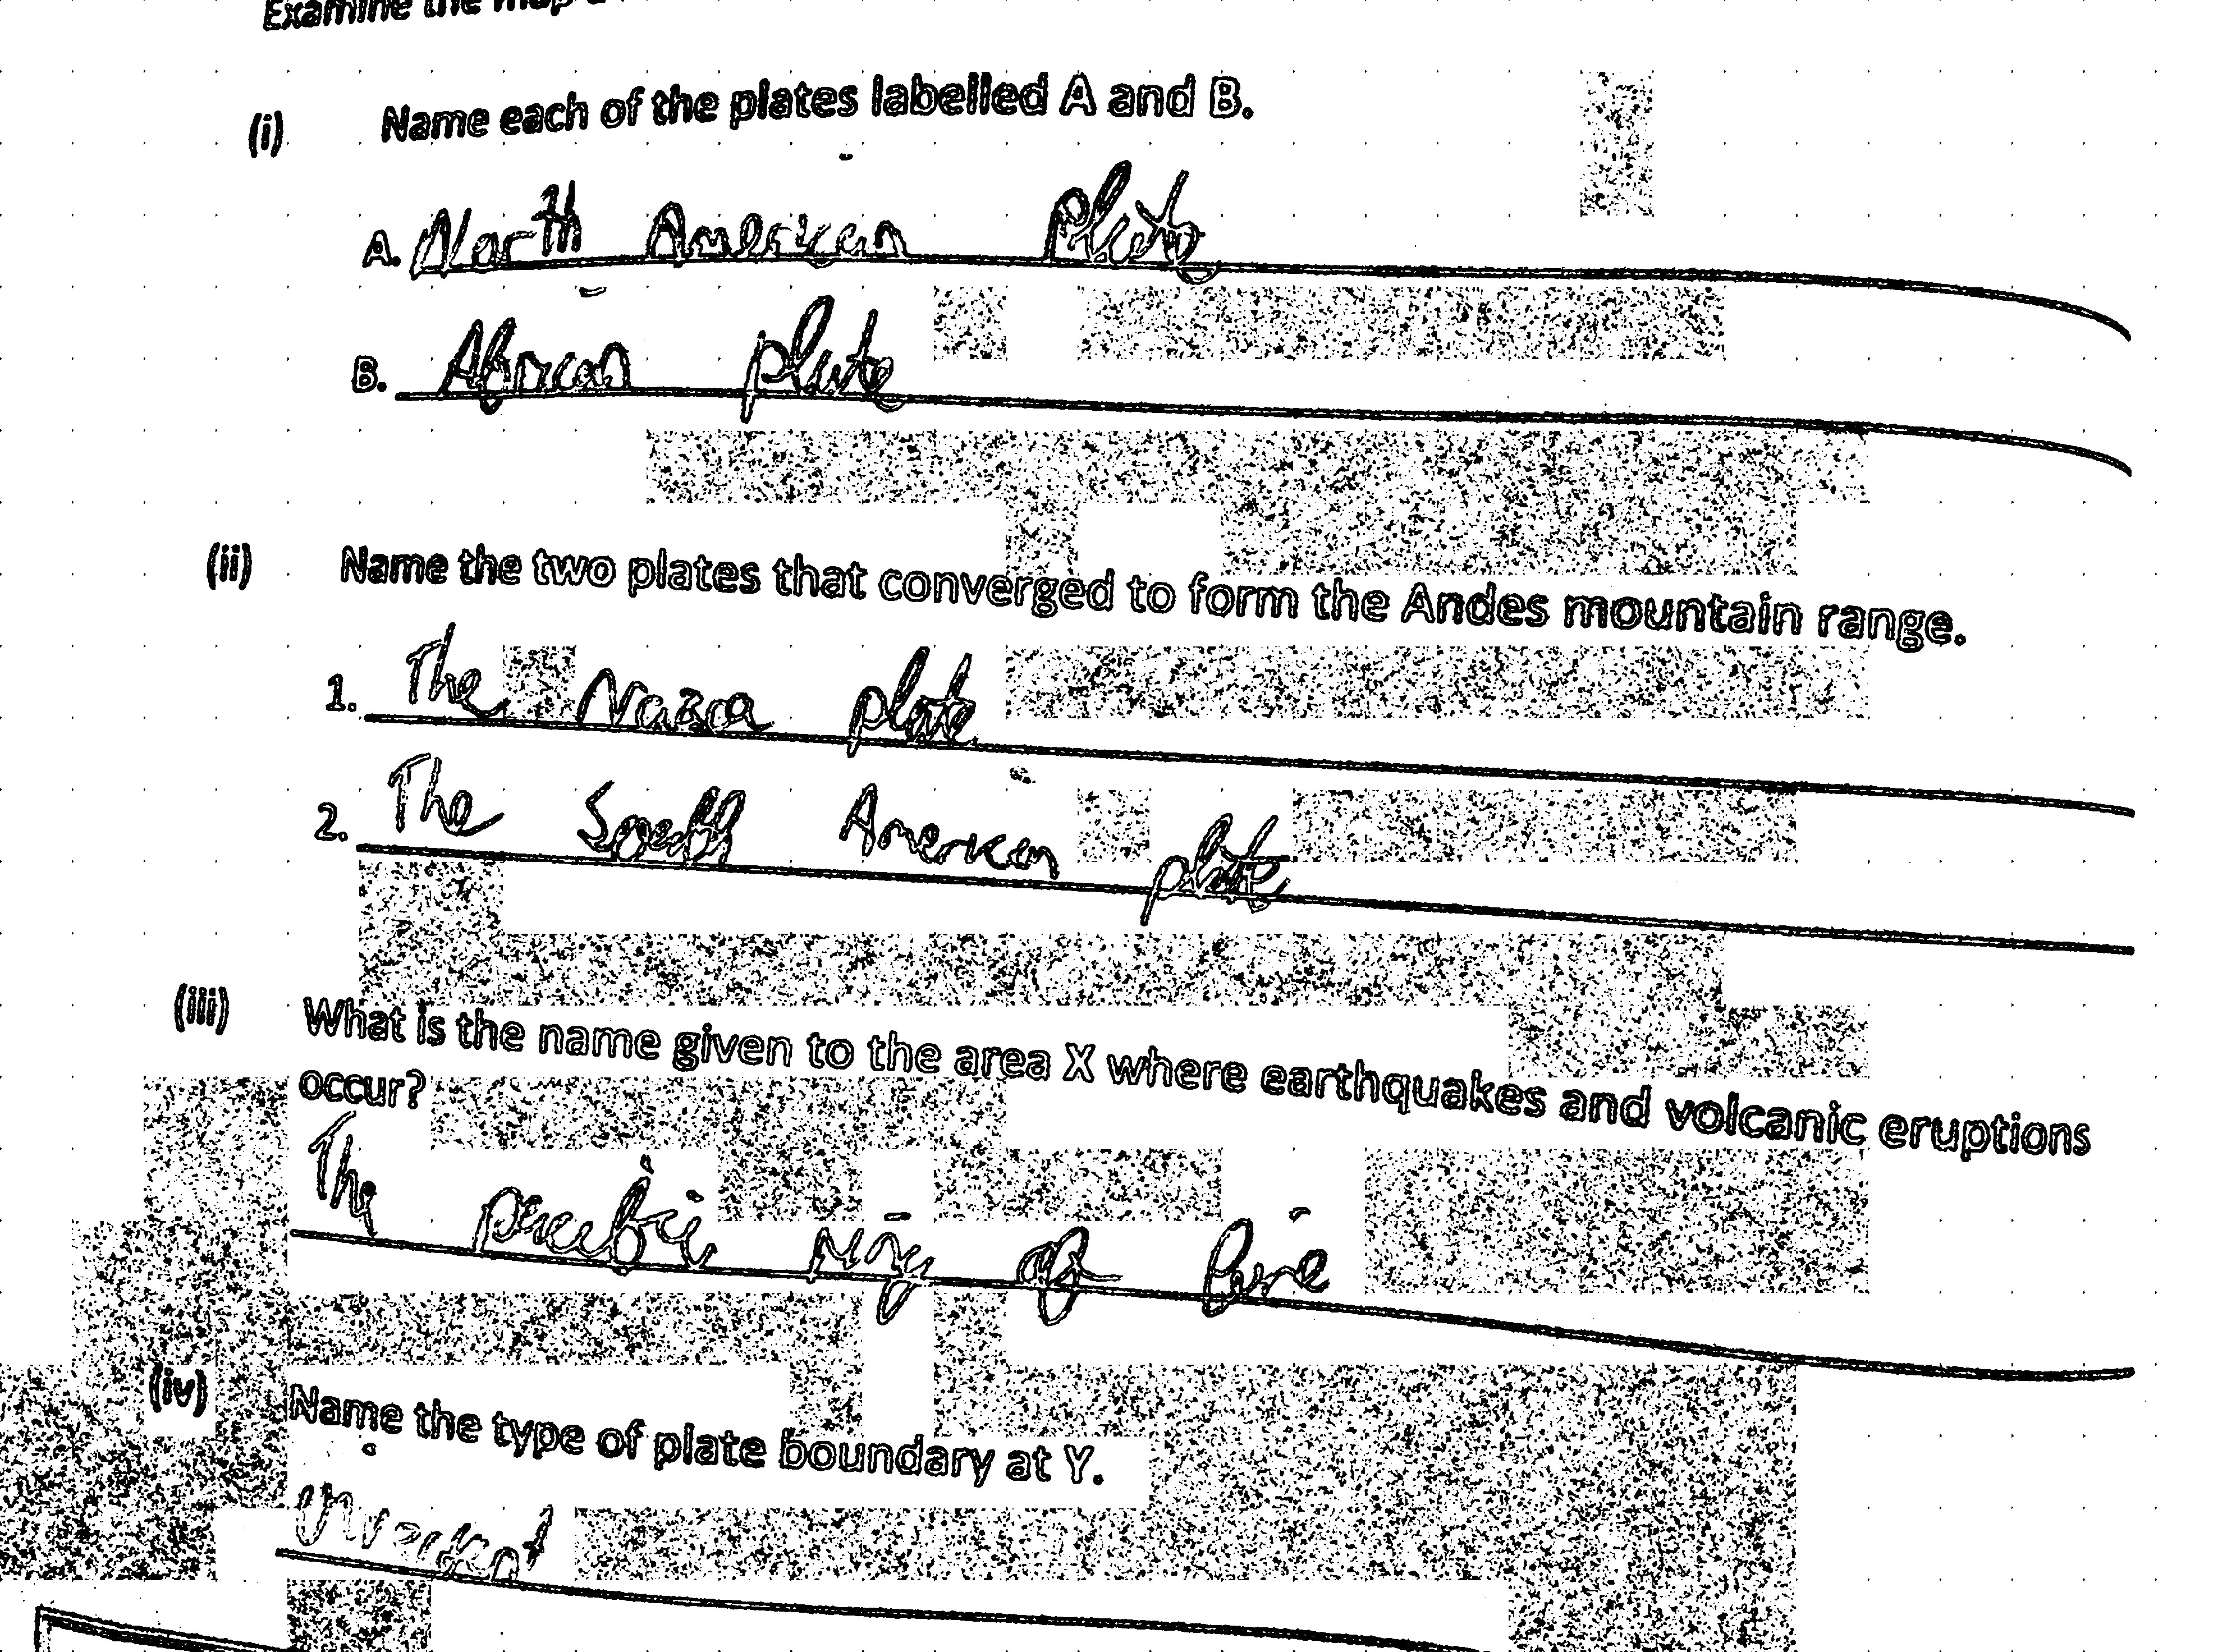 Examine the map
(i) Name each of the plates labelled A and B.
A. North American Plate
B. African plate
(ii) Name the two plates that converged to form the Andes mountain range.
1. The Nazca plate
2. The South American plate
(iii) What is the name given to the area X where earthquakes and volcanic eruptions
occur?
The pacific ring of fire
(iv) Name the type of plate boundary at Y.